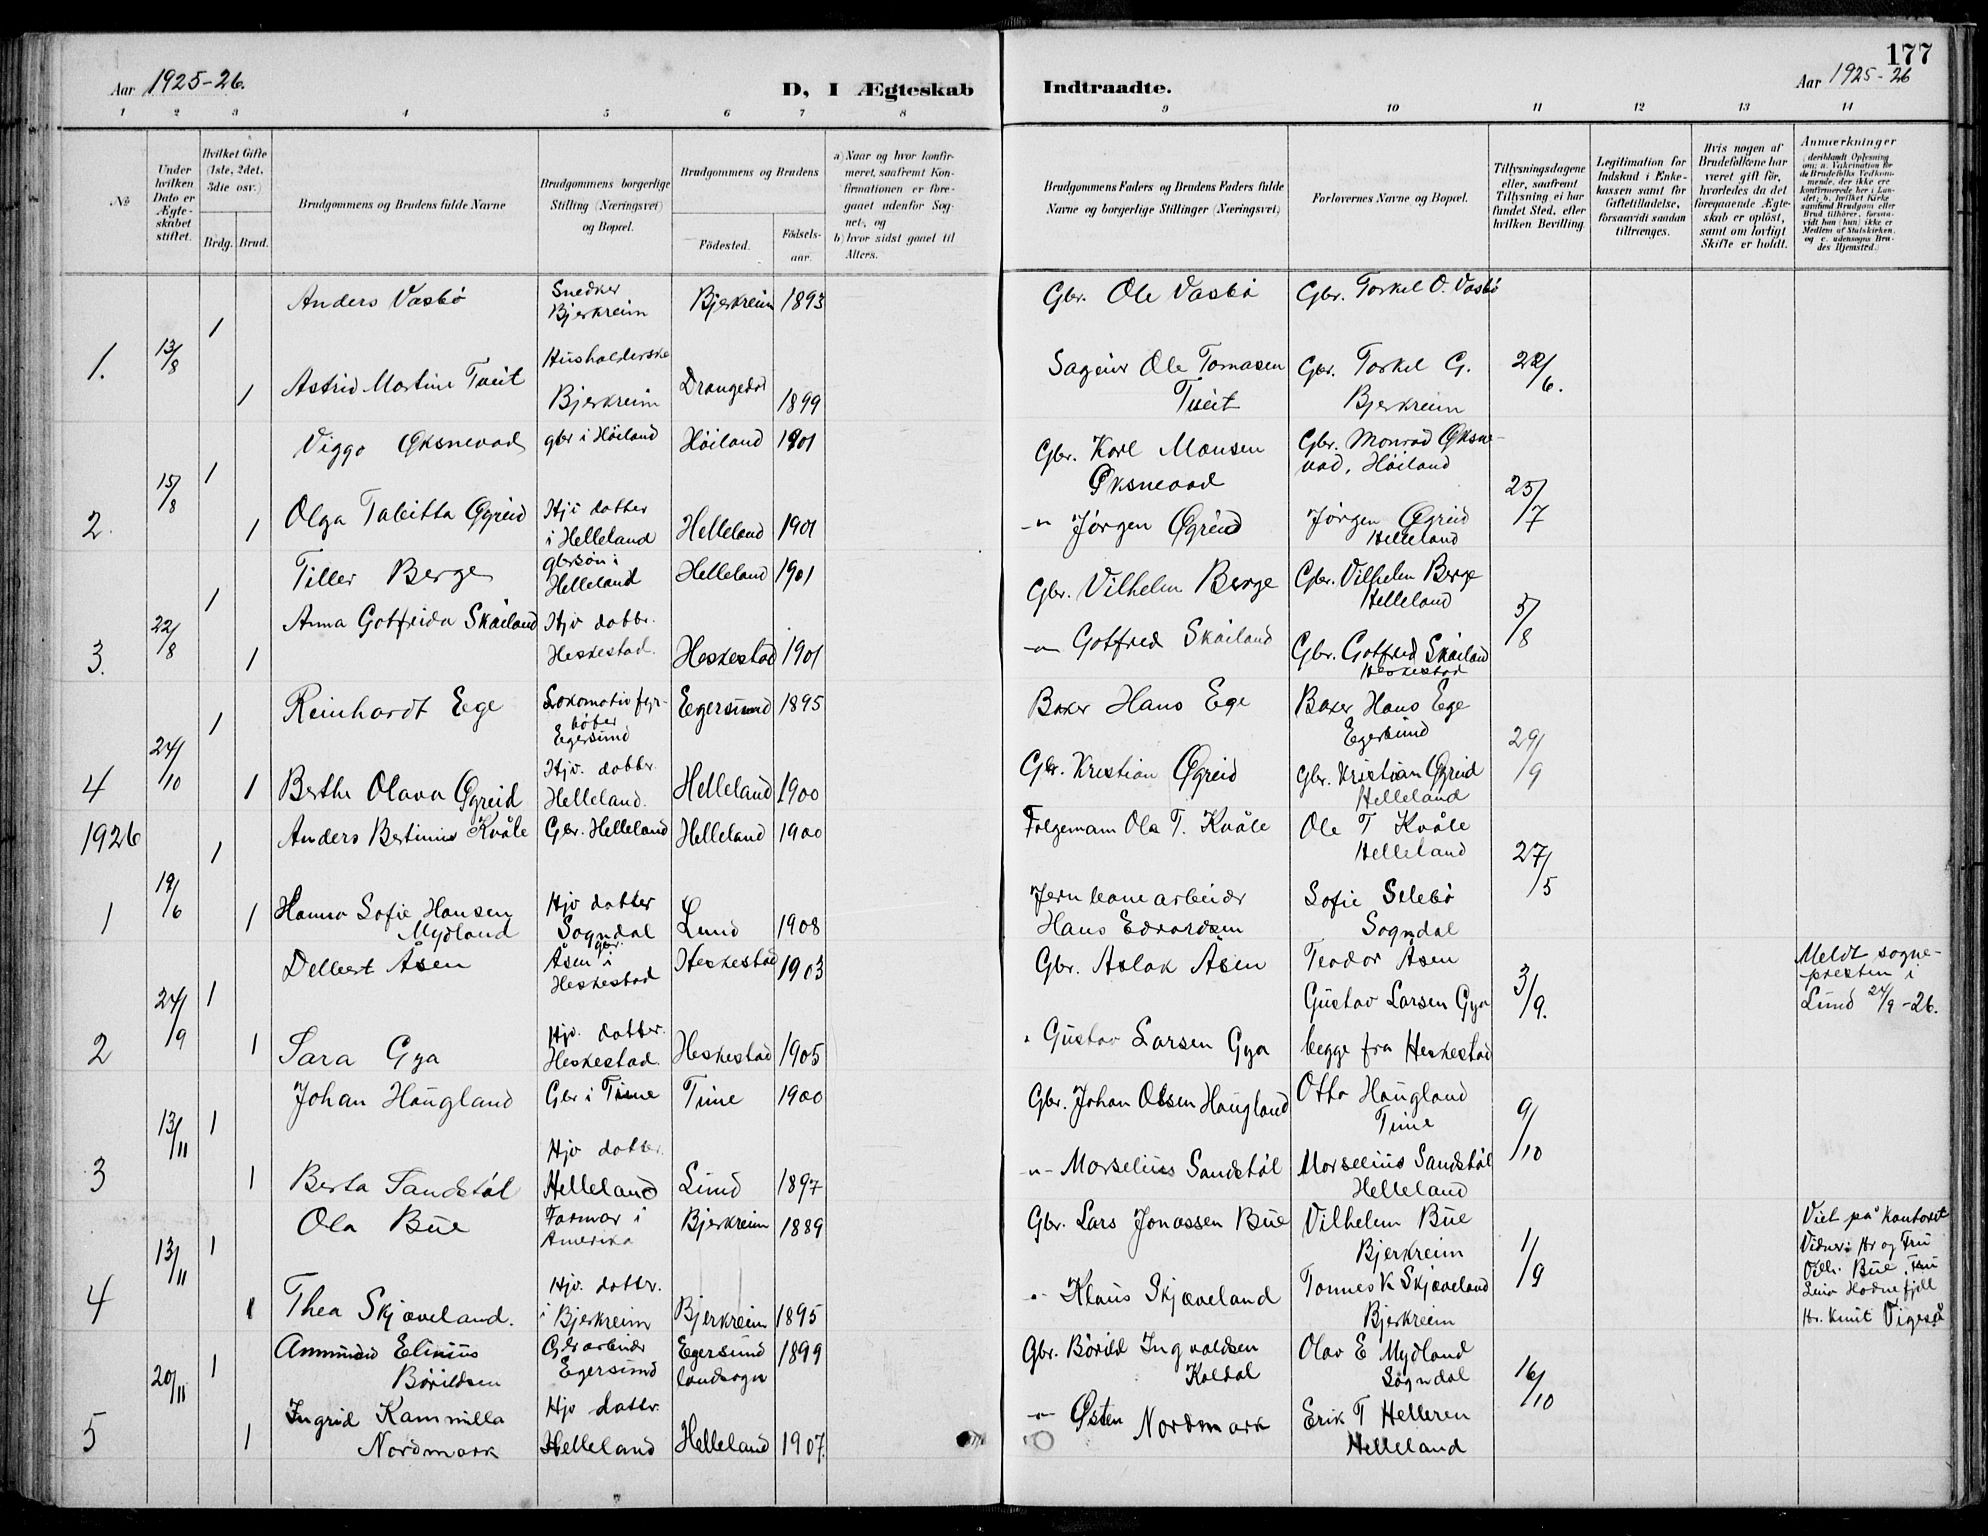 177
Aar 1925-26.
D, I Ægteskab
Indtraadte.
Aar 1925-26
1 2 3 4 5 6 7 8 9 10 11 12 13 14
No
Under hvilken Dato er Ægteskabet stiftet.
Hvilket Gifte (1ste, 2det, 3die osv.)
Brdg. Brud.
Brudgommens og Brudens fulde Navne
Brudgommens borgerlige Stilling (Næringsvei) og Bopæl.
Brudgommens og Brudens
Födested.
Födselsaar.
a) Naar og hvor konfirmeret, saafremt Konfirmationen er foregaaet udenfor Sognet, og
b) hvor sidst gaaet til Alters.
Brudgommens Faders og Brudens Faders fulde Navne og borgerlige Stillinger (Næringsvei)
Forlovernes Navne og Bopæl.
Tillysningsdagene eller, saafremt Tillysning ei har fundet Sted, efter hvilken Bevilling.
Legitimation for Indskud i Enkekassen samt for Giftetilladelse, forsaavidt saadan tiltrænges.
Hvis nogen af Brudefolkene har været gift før, hvorledes da det foregaaende Ægteskab er oplöst, samt om lovligt Skifte er holdt.
Anmærkninger
(deriblandt Oplysning om: a. Vakcination for de Brudefolks Vedkommende, der ikke ere konfirmerede her i Landet; b. hvilket Kirkesamfund Brudgom eller Brud tilhører, forsaavidt han (hun) ikke er Medlem af Statskirken, og c. udensogns Brudes Hjemsted.)
1. 13/8 1 Anders Vasbø Snedker Bjerkreim Bjerkreim 1893 Gbr. Ole Vasbø Gbr. Torkel O. Vasbø
1 Astrid Martine Tveit Husholderske Bjerkreim Drangedal 1899 Sageier Ole Tomasen Tveit Gbr. Torkel G. Bjerkreim 22/6.
2. 15/8 1 Viggo Øksnevad gbr i Høiland Høiland 1901 Gbr. Karl Monsen Øksnevad Gbr. Monrad Øksnevad, Høiland
1 Olga Tabitta Øgreid Hjv datter i Helleland Helleland 1901 -"- Jørgen Øgreid Jørgen Øgreid Helleland 25/7
3. 22/8 1 Tiller Berge gbrsøn i Helleland Helleland 1901 Gbr. Vilhelm Berge Gbr. Vilhelm Berge Helleland
1 Anna Gotfrida Skåiland Hjv dattr. Heskestad. Heskestad 1901 -"- Gotfred Skåiland Gbr. Gotfred Skåiland Heskestad 5/8
4 24/10 1 Reinhardt Ege Lokomotivfyrbøter Egersund Egersund 1895 Baker Hans Ege Baker Hans Ege Egersund
1 Berthe Olava Øgreid Hjv. dattr. Helleland. Helleland 1900 Gbr. Kristian Øgreid Gbr. Kristian Øgreid Helleland 29/9
1926
1 19/6 1 Anders Bertinius Kvåle Gbr. Helleland Helleland 1900 Følgemann Ola T. Kvåle Ole T Kvåle Helleland 27/5
1 Hanna Sofie Hansen Mydland Hjv datter Sogndal Lund 1908 Jernbanearbeider Hans Edvardsen Sofie Selebø Sogndal
2 24/9 1 Delbert Åsen gbr. Åsen i Heskestad Heskestad 1903 Gbr. Aslak Åsen Teodor Åsen 3/9. Meldt sognepresten i Lund 24/9-26.
1 Sara Gya Hjv. datter. Heskestad. Heskestad 1905 " Gustav Larsen Gya Gustav Larsen Gya begge fra Heskestad
3 13/11 1 Johan Haugland Gbr i Time Time 1900 Gbr. Johan Olsen Haugland Otto Haugland Time 9/10
1 Berta Sandstøl Hjv datter. Helleland Lund 1897 -"- Morselius Sandstøl Morselius Sandstøl Helleland
4 13/11 1 Ola Bue Farmar i Amerika Bjerkreim 1889 Gbr. Lars Jonassen Bue Vilhelm Bue Bjerkreim 1/9 Viet på kontoret Vidner: Hr og Fru Vilh. Bue, Fru Lina Hodnefjell Hr. Knut Vigeså
1 Thea Skjæveland. Hjv. datter. i Bjerkreim Bjerkreim 1895 -"- Klaus Skjæveland Tønnes K Skjæveland Bjerkreim
5 20/11 1 Ammund Elinius Bårildsen Gbrarbeider Egersund Egersund landsogn 1899 Gbr. Bårild Ingvaldsen Koldal Olav E Mydland Sogndal 16/10
1 Ingrid Kammilla Nordmark Hjv dattr. Helleland Helleland 1907. -"- Østen Nordmark Erik T Helleren Helleland